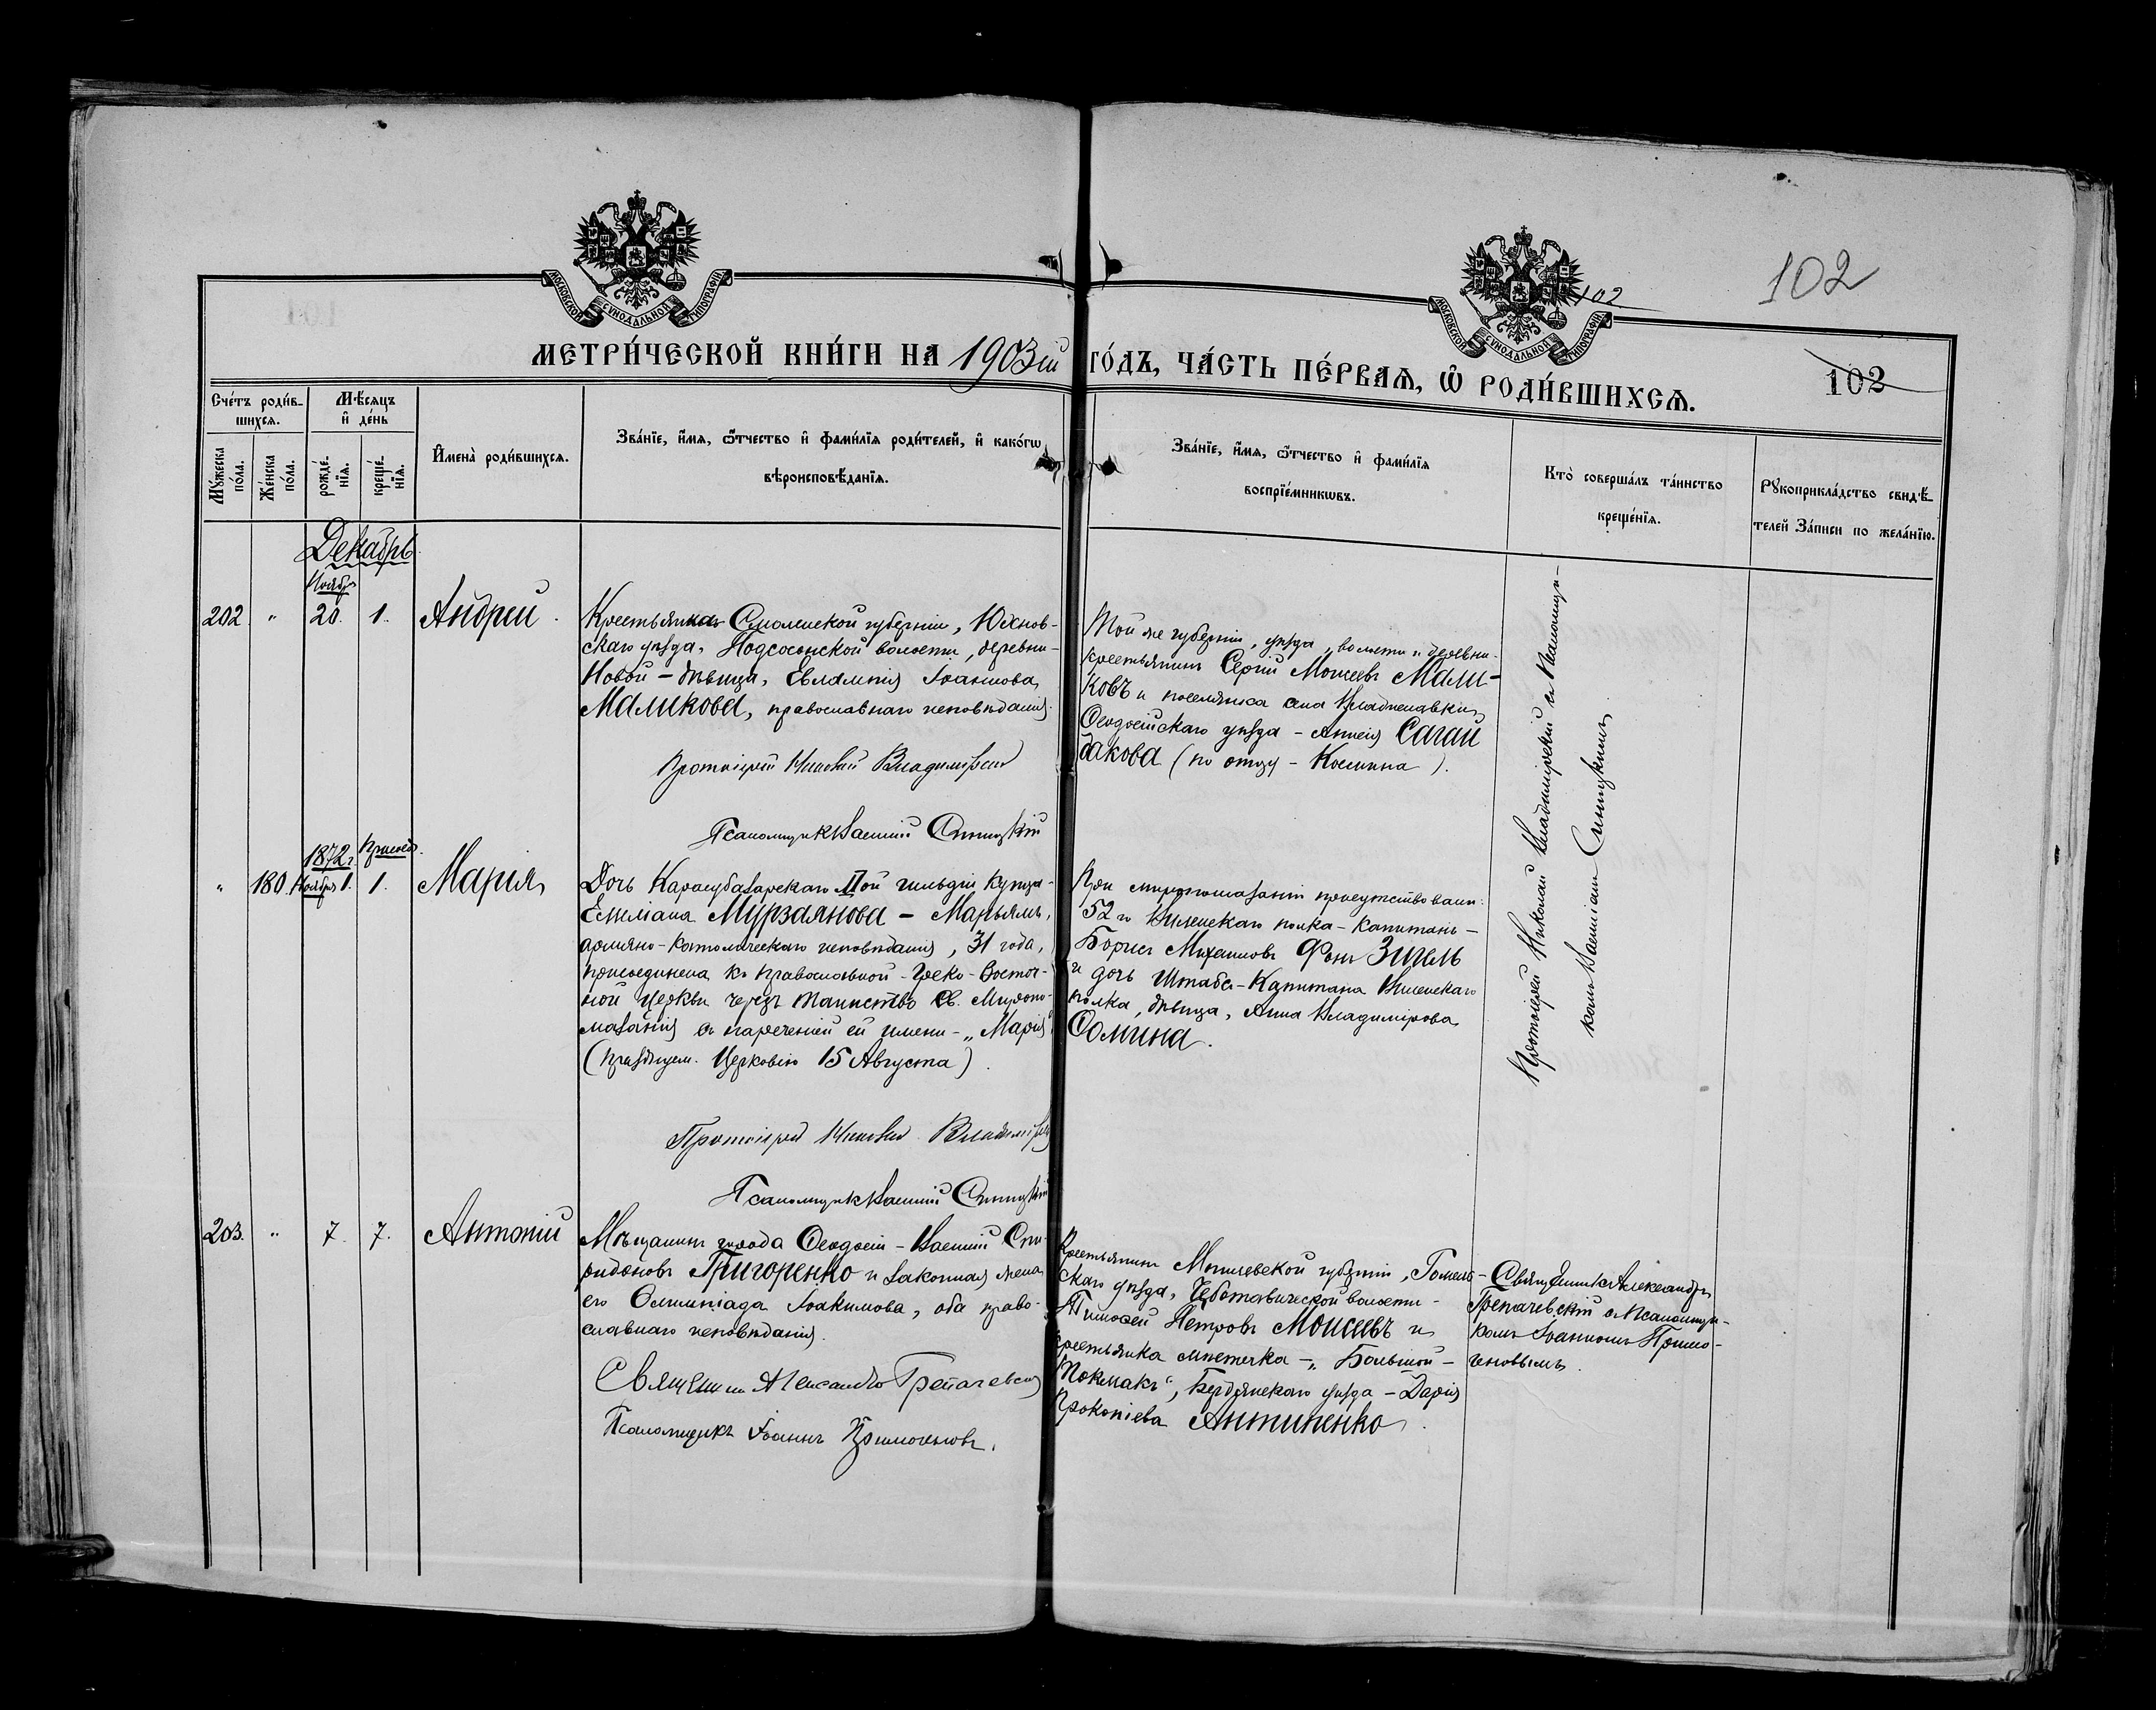 МОСКОВСКОЙ СѴНОДАЛЬНОЙ ТИПОГРАФІИ
МОСКОВСКОЙ СѴНОДАЛЬНОЙ ТИПОГРАФІИ
102
102
МЕТРИ́ЧЕСКОЙ КНИ́ГИ НА 1903ій ГО́ДЪ, ЧА́СТЬ ПЕ́РВАѦ, Ѡ҆ РОДИ́ВШИХСѦ.
102
Сче́тъ роди́в-
шихсѧ.
Мѣ́сѧцъ
и҆ де́нь
Мꙋ́жеска
по́ла.
Же́нска
по́ла.
рожде́-
нїѧ.
креще́-
нїѧ.
И҆мена̀ роди́вшихсѧ.
Зва́нїе, и҆́мѧ, ѻ҆́тчество и҆ фами́лїѧ роди́телей, и҆ како́гѡ
вѣроисповѣ́данїѧ.
Зва́нїе, и҆́мѧ, ѻ҆́тчество и҆ фами́лїѧ
воспрїе́мникѡвъ.
Кто̀ соверша́лъ та́инство
креще́нїѧ.
Рꙋкоприкла́дство свидѣ́-
телей За́писи по жела́нїю.
Декабрь
Ноябрь
202 " 20. 1. Андрей.
Крестьянка Смоленской губерніи, Юхнов-
скаго уѣзда, Подсосонской волости, деревни
Новой - дѣвица, Евлампія Іоаннова
Маликова, православнаго исповѣданія.
Протоіерей Николай Владимірскій
Псаломщикъ Василій Синицкій
Той же губерніи, уѣзда, волости и деревни
крестьянинъ Сергій Моисеевъ Мали-
ковъ и поселянка села Владиславки,
Ѳеодосійскаго уѣзда - Агнія Сагай
дакова (по отцу - Косинина).
Протоіерей Николай Владимірскій съ Псаломщи-
комъ Василіемъ Синицкимъ
1872 г. Присоед.
" 180. Ноября 1. 1. Марія
Дочь Карасубазарскаго II ой гильдіи купца
Емеліана Мурзаянова - Марьямъ,
армяно-католическаго исповѣданія, 31 года,
присоединена къ Православной-Греко-Восточ-
ной Церкви чрезъ таинство Св. Мѵропо-
мазанія съ нареченіемъ ей имени - „Марія"
(празднуем. Церковію 15 Августа).
Протоіерей Николай Владимірскій
Псаломщикъ Василій Синицкій
При мѵропомазаніи присутствовали:
52 го Виленскаго полка - Капитанъ -
Борисъ Михаиловъ Фонъ Зигель
и дочь Штабсъ-Капитана Виленскаго
полка, дѣвица, Анна Владимірова
Сомина.
203. " 7. 7. Антоній
Мѣщанинъ города Ѳеодосіи - Василій Спи-
ридоновъ Григоренко и законная жена
его Олимпіада Іоакимова, оба право-
славнаго исповѣданія.
Священникъ Александръ Грепачевскій
Псаломщикъ Іоаннъ
Крестьянинъ Могилевской губерніи, Гомель-
скаго уѣзда, Чеботовической волости -
Тимоѳей Петровъ Моисеевъ и
крестьянка мѣстечка - „Большой -
Токмакъ", Бердянскаго уѣзда - Дарія
Прокопіева Антипенко.
Священникъ Александръ
Грепачевскій съ Псаломщи-
комъ Іоанномъ